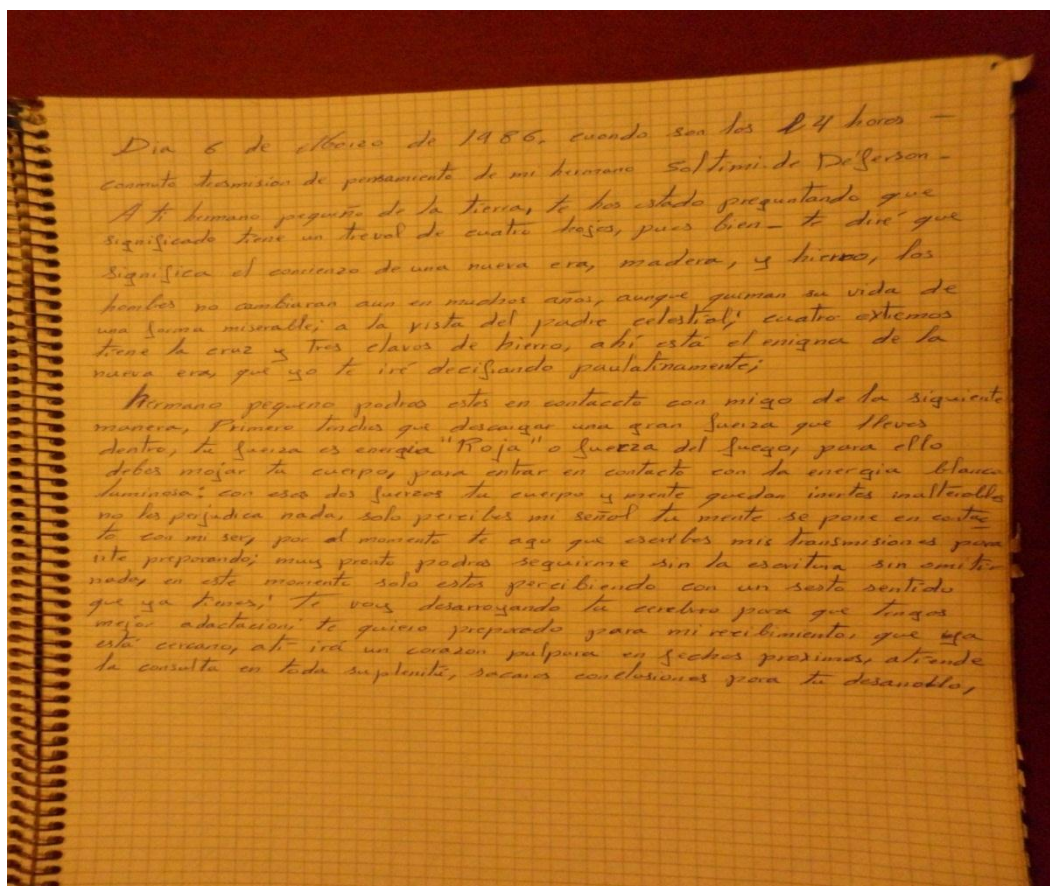 Dia 6 de Marzo de 1986, cuando son las 24 horas –
conmuto trasmisión de pensamiento de mi hermano Soltimi.de De'ferson –
A ti hermano pequeño de la tierra, te has estado preguntando que
significado tiene un trevol de cuatro hojas, pues bien – te diré que
significa el comienzo de una nueva era, madera, y hierro, los
hombes no cambiaran aun en muchos años, aunque quiman su vida de
una forma miserable; a la vista del padre celestial; cuatro extremos
tiene la cruz y tres clavos de hierro, ahí está el enigna de la
nueva era, que yo te iré decifiando paulatinamente;
hermano pequeno podras estas en contaccto con migo de la siguiente
manera, Primero tindras que descargar una gran fuerza que llevas
dentro, tu fuerza es energia "Roja" o fuerza del fuego, para ello
debes mojar tu cuerpo, para entrar en contacto con la energia blanca
luminosa: con esas dos fuerzas tu cuerpo y mente quedan inertes inalterables
no les perjudica nada, solo percibes mi señal tu mente se pone en contac
to con mi ser, por el momento te ago que escribes mis transmisiones para
irte preparando; muy pronto podras seguirme sin la escritura sin omitir
nada, en este momento solo estas percibiendo con un sesto sentido
que ya tienes; te voy desarroyando tu cerebro para que tengas
mejor adactacion; te quiero preparado para mi recibimiento, que ya
está cercano, ati irá un corazon pulpora en fechas proximas, atiende
la consulta en toda suplenitú, sacaras conclusiones para tu desarrollo,